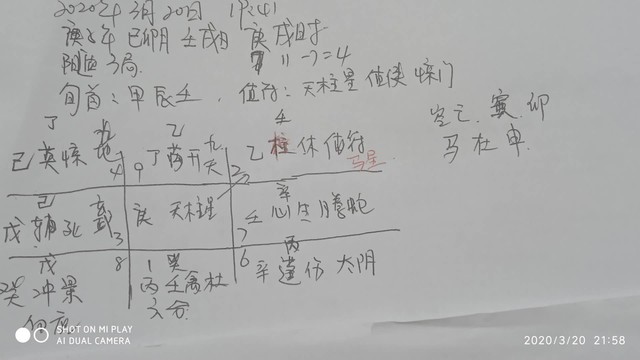 2020年3月20日 19:41
庚子年 己卯月 壬戌日 庚戌时
阳遁3局. 11-7=4
旬首:甲辰壬. 值符:天柱星 值使 惊门
空亡.寅.卯
马在申.
丁 九地 乙 九天 壬
己英惊 4 9 丁芮开 2 乙柱休值符 马星.
己 辛
戊辅死 3 庚 天柱星 7 壬心生螣蛇
戊 8 1 癸 6 丙
癸冲景 丙壬禽杜 辛蓬伤太阴
六合
SHOT ON MI PLAY
AI DUAL CAMERA
2020/3/20 21:58